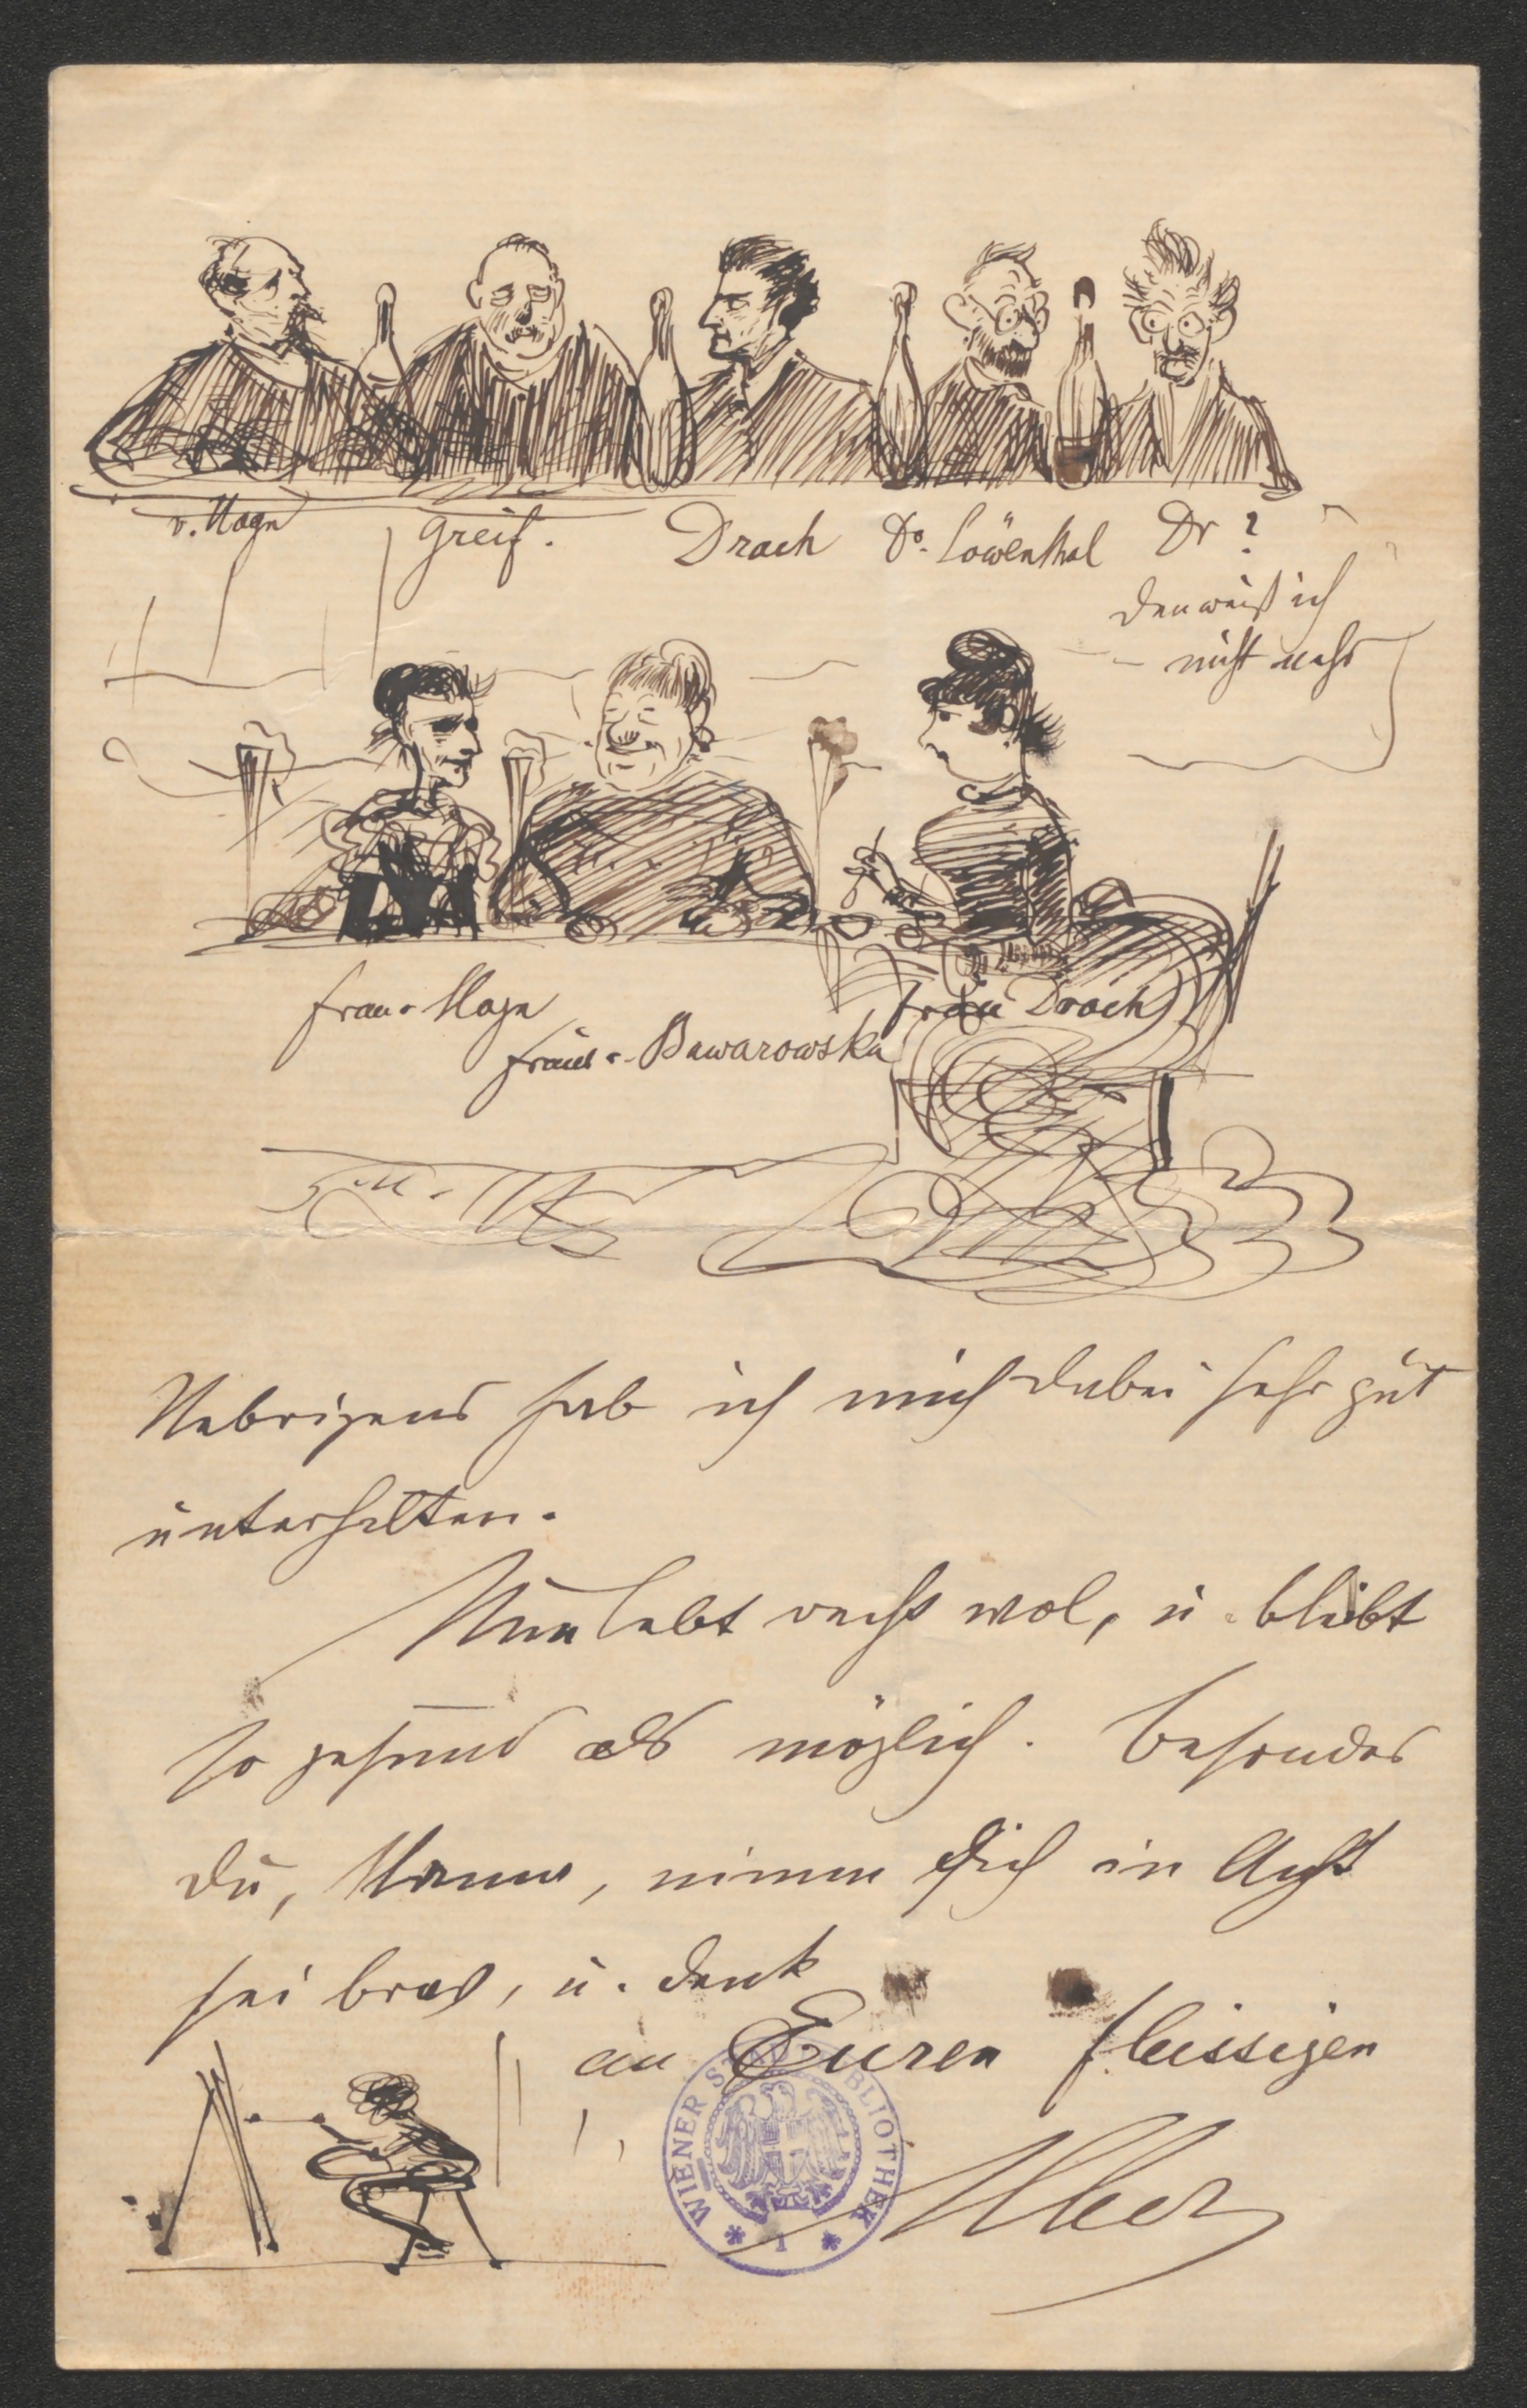 v. Hagn
Greif.
Drach
Dr. Löwenthal
Dr ?
den weiß ich
nicht mehr
Frau v. Hagn
Frau v. Bawarowska
Frau Drach
Uebrigens hab ich mich dabei sehr gut
unterhalten.
Nun lebt recht wol, u. bleibt
so gesund als möglich. Besonders
du, Mama, nimm Dich in Acht
sei brav, u. denk
an Euren fleissigen
WIENER STADTBIBLIOTHEK